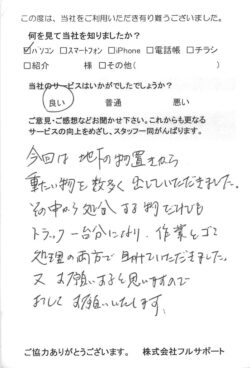 この度は、当社をご利用いただき有り難うございました。
何を見て当社を知りましたか?
☑パソコン □スマートフォン □iPhone □電話帳 □チラシ
□紹介 様 □その他( )
当社のサービスはいかがでしたでしょうか?
良い 普通 悪い
ご意見・ご感想などお聞かせ下さい。これからも更なる
サービスの向上をめざし、スタッフ一同がんばります。
今回は地下の物置きから
重たい物を数多く出していただきました。
その中から処分する物だけでも
トラック一台分になり、作業とゴミ
処理の両方で助けていただきました。
又お願いすると思いますので
よろしくお願いいたします。
ご協力ありがとうございます。 株式会社フルサポート